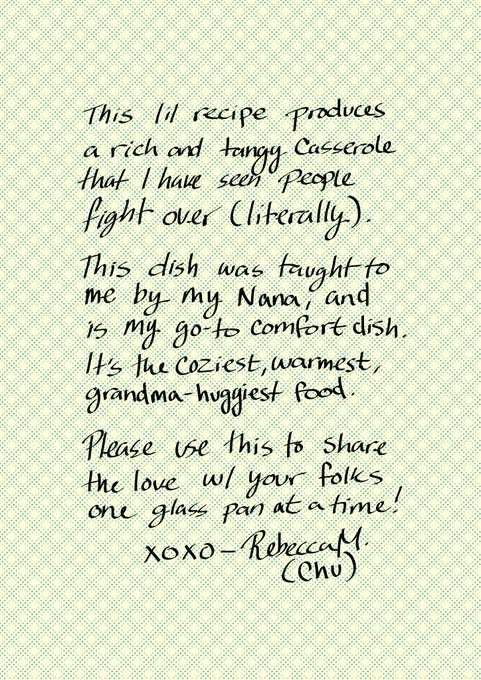 This lil recipe produces
a rich and tangy Casserole
that I have seen people
fight over (literally).
This dish was taught to
me by my Nana, and
is my go-to comfort dish.
It's the coziest, warmest,
grandma-huggiest food.
Please use this to share
the love w/ your folks
one glass pan at a time!
xoxo - Rebecca M.
(Chu)